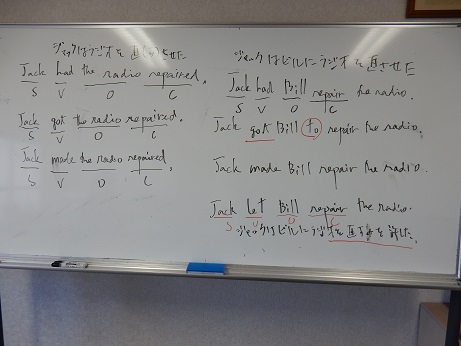 ジャックはラジオを直(り)させた
Jack had the radio repaired.
S V O C
Jack got the radio repaired.
S V O C
Jack made the radio repaired.
S V O C
ジャックはビルにラジオを直させた
Jack had Bill repair the radio.
S V O C
Jack got Bill to repair the radio.
Jack made Bill repair the radio.
Jack let Bill repair the radio.
S V O C
ジャックはビルにラジオを直す事を許した.